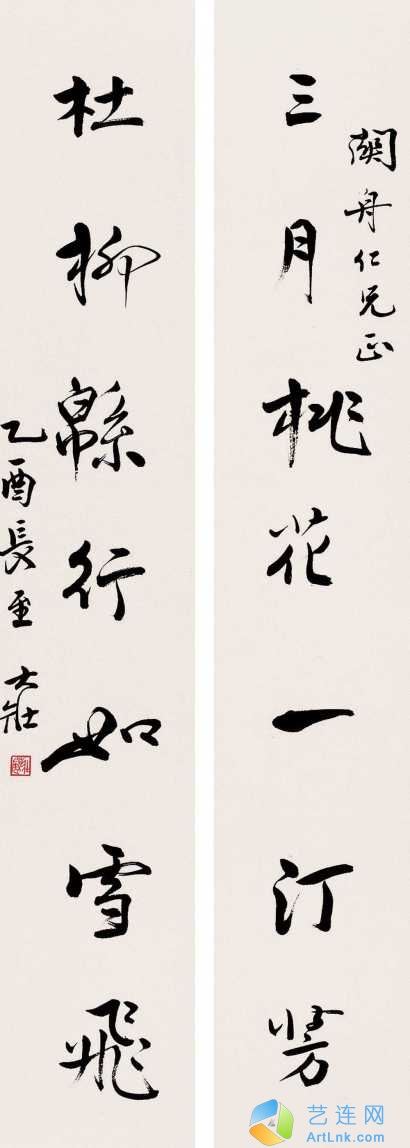 瀾舟仁兄正
三月桃花一汀芳
杜柳緜行如雪飛
乙酉長至 大壯
艺连网
ArtLnk.Com